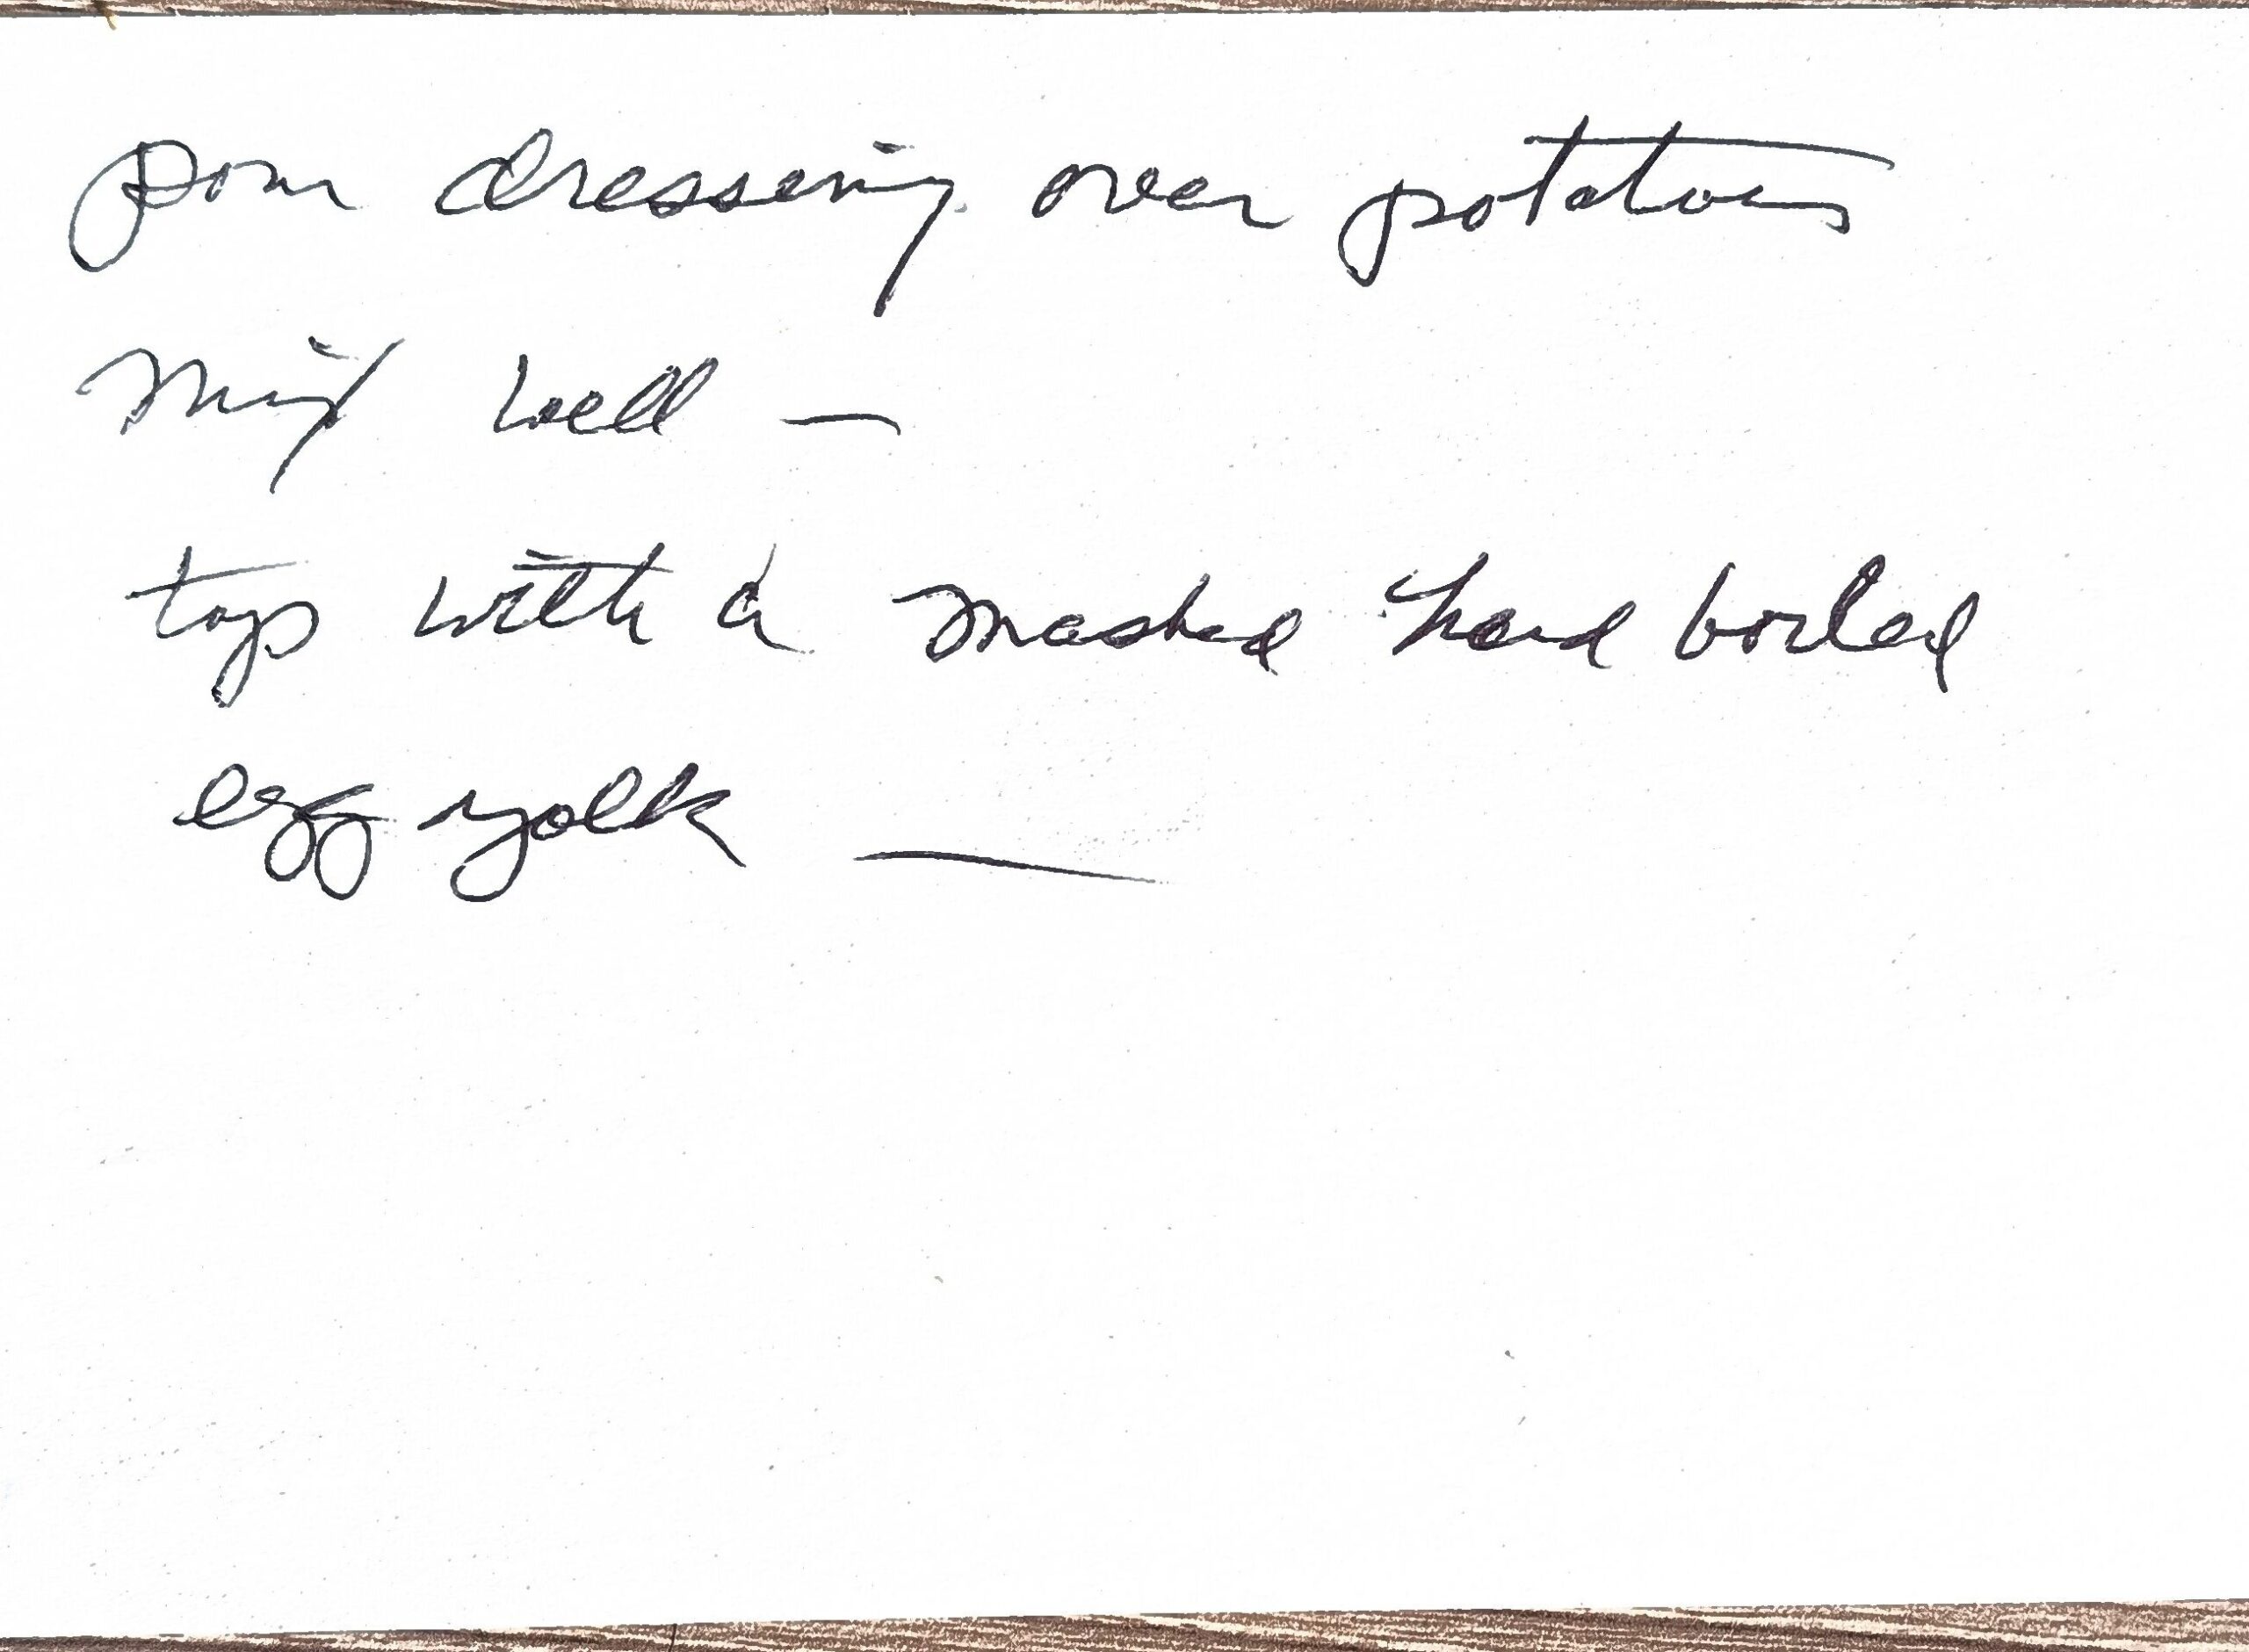 pour dressing over potatoes
mix well —
top with a mashed hard boiled
egg yolk —